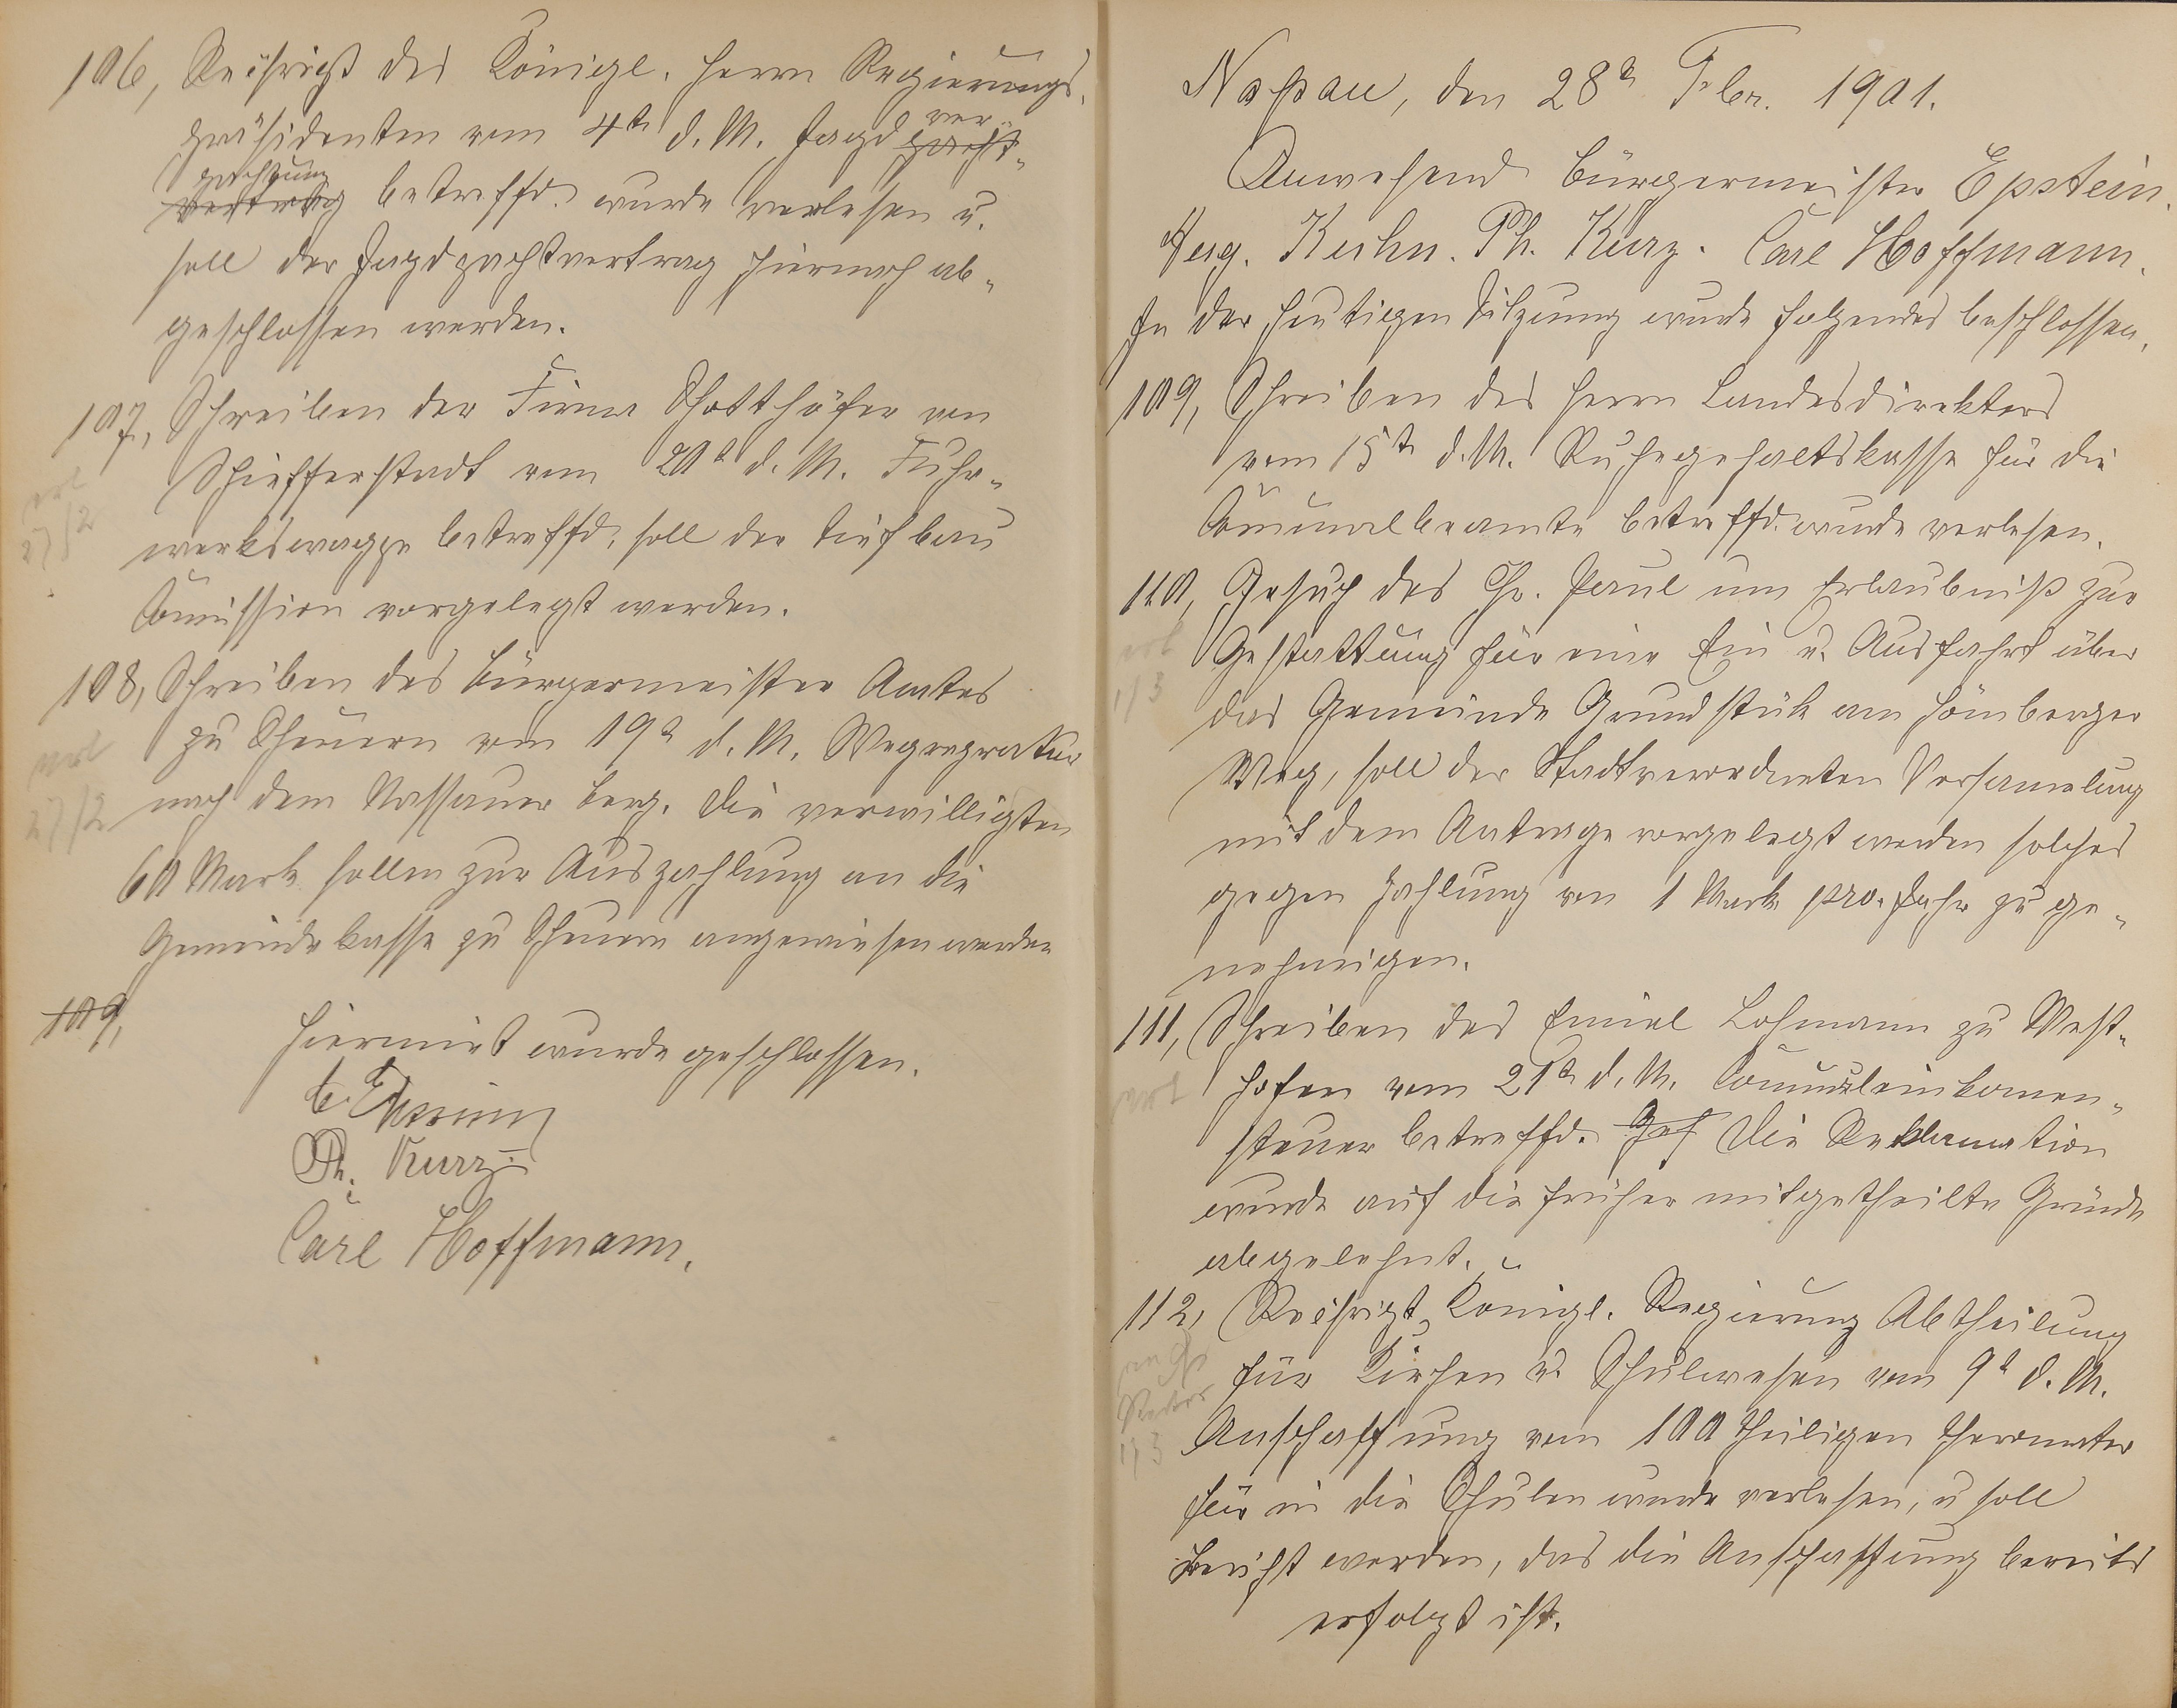 106, Rescript des Königl. Herrn Regierungs-
präsidenten vom 4t d. M. Jagd ver-
pacht-
pachtung
vertrag betreffd. wurde verlesen u.
soll der Jagdpachtvertrag hiernach ab-
geschlossen werden.
107, Schreiben der Firma Schotthöfer von
Schifferstadt vom 20t d. M. Fuhr-
erl
27/2
werkswagge betreffd, soll der Tiefbau
Com̄ission vorgelegt werden.
108, Schreiben des Bürgermeister Amtes
zu Scheuern vom 19t d. M. Wegreparatur
erl
27/2
nach dem Nassauer Berg. Die verwilligten
60 Mark sollen zur Auszahlung an die
Gemeindekasse zu Scheuern angewiesen werden
109,
Hiermit wurde geschlossen.
Ph. Kurz
Carl Hoffmann.
Naßau, den 28t Febr. 1901.
Anwesend Bürgermeister Epstein.
Aug. Kuhn. Ph. Kurz. Carl Hoffmann.
In der heutigen Sitzung wurde folgendes beschlossen.
109, Schreiben des Herrn Landesdirektors
vom 15t d. M. Ruhegehaltskasse für die
Com̄unalbeamte betreffd. wurde verlesen.
110, Gesuch des Chr. Paul um Erlaubniß zur
erl
1/3
Gestattung für eine Ein u. Ausfahrt über
das Gemeinde Grundstük am Hömberger
Weg, soll der Stadtverordneten Versam̄lung
mit dem Antrage vorgelegt werden solches
gegen Zahlung von 1 Mark pro. Jahr zu ge-
nehmigen.
111, Schreiben des Emiel Lohmann zu West-
erl
hofen vom 21t d. M. Com̄unaleinkomen-
steuer betreffd. Ges Die Reklamation
wurde auf die früher mitgetheilte Gründe
abgelehnt.
112, Rescript Königl. Regierung Abtheilung
Rektor
1/3
für Kirchen u. Schulwesen vom 9t d. M.
Anschaffung vom 100 theiligen Thermometer
für in die Schulen wurde verlesen, u soll
bericht werden, das die Anschaffung bereits
erfolgt ist.